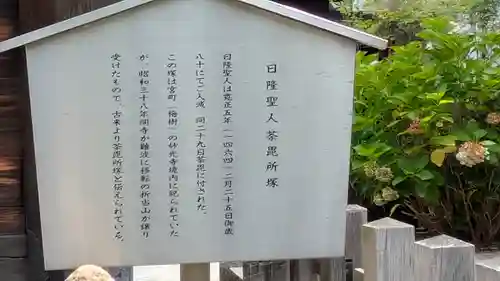 日隆聖人荼毘所塚
日隆聖人は寛正五年(一四六四)二月二十五日御歳
八十にてご入滅 同二十九日荼毘に付された。
この塚は宮町(梅樹)の妙光寺境内に祀られていた
が、昭和三十八年同寺が難波に移転の折当山が譲り
受けたもので、古来より荼毘所塚と伝えられている。